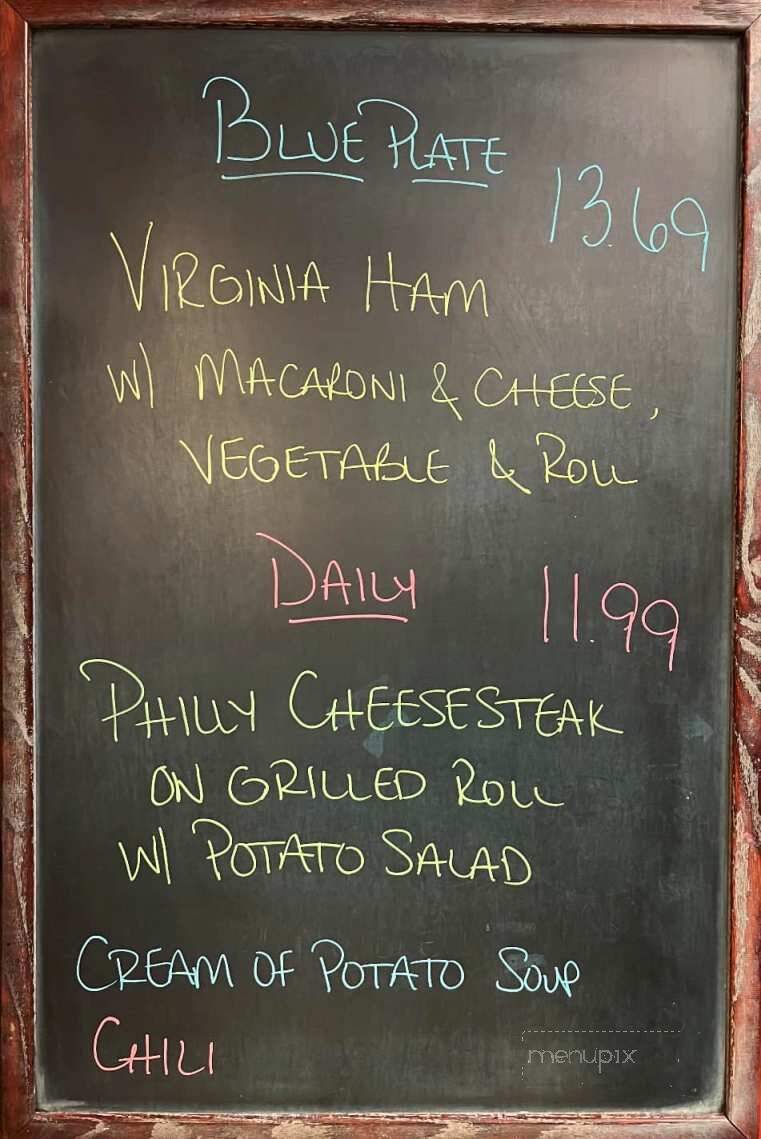 BLUE PLATE
13.69
VIRGINIA HAM
W/ MACARONI & CHEESE,
VEGETABLE & ROLL
DAILY
11.99
PHILLY CHEESESTEAK
ON GRILLED ROLL
W/ POTATO SALAD
CREAM OF POTATO SOUP
CHILI
menupix